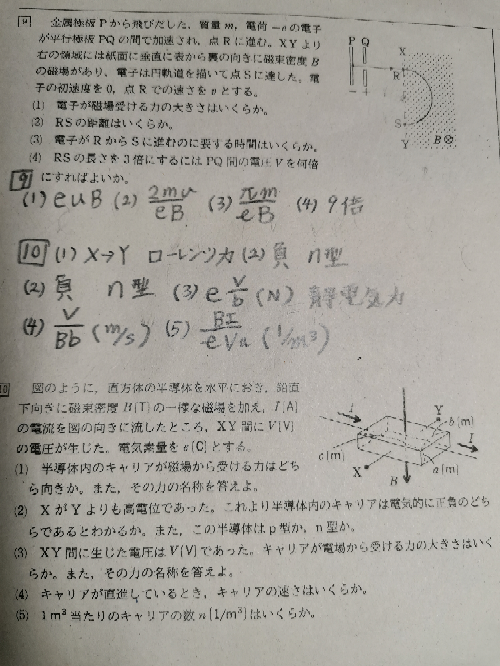 9 金属極板Pから飛びだした，質量m，電荷−eの電子
が平行極板PQの間で加速され，点Rに進む。XYより
右の領域には紙面に垂直に表から裏の向きに磁束密度B
の磁場があり，電子は円軌道を描いて点Sに達した。電
子の初速度を0，点Rでの速さをvとする。
(1) 電子が磁場受ける力の大きさはいくらか。
(2) RSの距離はいくらか。
(3) 電子がRからSに進むのに要する時間はいくらか。
(4) RSの長さを3倍にするにはPQ間の電圧Vを何倍
にすればよいか。
P Q X
R
S
Y B⊗
9
(1) evB (2) 2mv/eB (3) πm/eB (4) 9倍
10 (1) X→Y ローレンツ力 (2) 負 n型
(2) 負 n型 (3) e V/b (N) 静電気力
(4) V/Bb (m/s) (5) BI/eVa (1/m³)
10 図のように，直方体の半導体を水平におき，鉛直
下向きに磁束密度B[T]の一様な磁場を加え，I[A]
の電流を図の向きに流したところ，XY間にV[V]
の電圧が生じた。電気素量をe[C]とする。
I Y b[m] I
c[m] X B a[m]
(1) 半導体内のキャリアが磁場から受ける力はどち
ら向きか。また，その力の名称を答えよ。
(2) XがYよりも高電位であった。これより半導体内のキャリアは電気的に正負のどち
らであるとわかるか。また，この半導体はp型か，n型か。
(3) XY間に生じた電圧はV[V]であった。キャリアが電場から受ける力の大きさはいく
らか。また，その力の名称を答えよ。
(4) キャリアが直進しているとき，キャリアの速さはいくらか。
(5) 1m³当たりのキャリアの数n[1/m³]はいくらか。